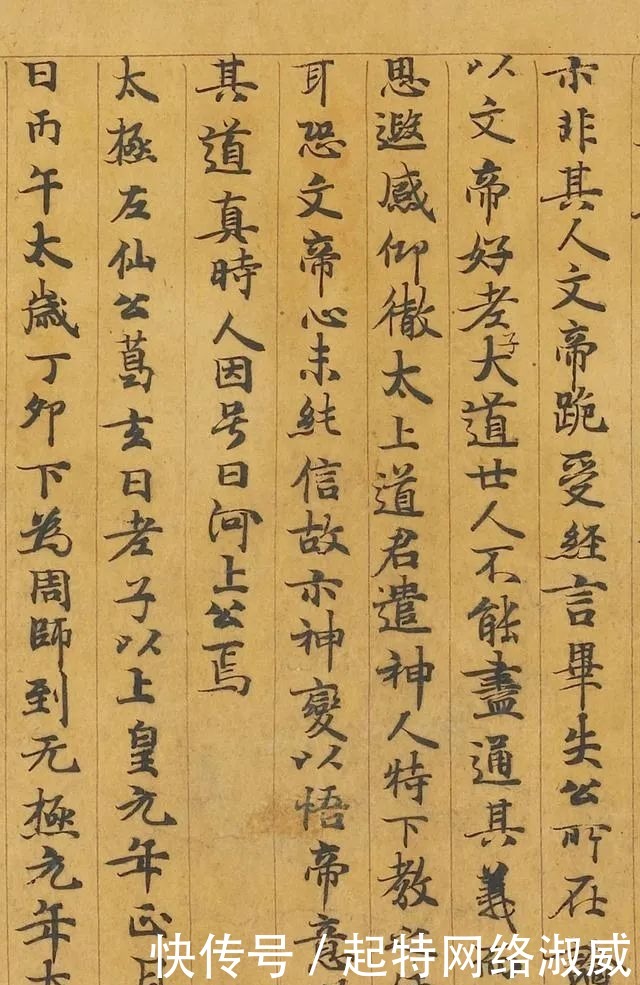 示非其人文帝跪受經言畢失公所在
以文帝好老子大道廿人不能盡通其義
思遐感仰徹太上道君遣神人特下教
耳恐文帝心未純信故示神變以悟帝意
其道真時人因号曰河上公焉
太極左仙公葛玄曰老子以上皇元年正月
日丙午太歲丁卯下為周師到无極元年
快传号/起特网络淑威